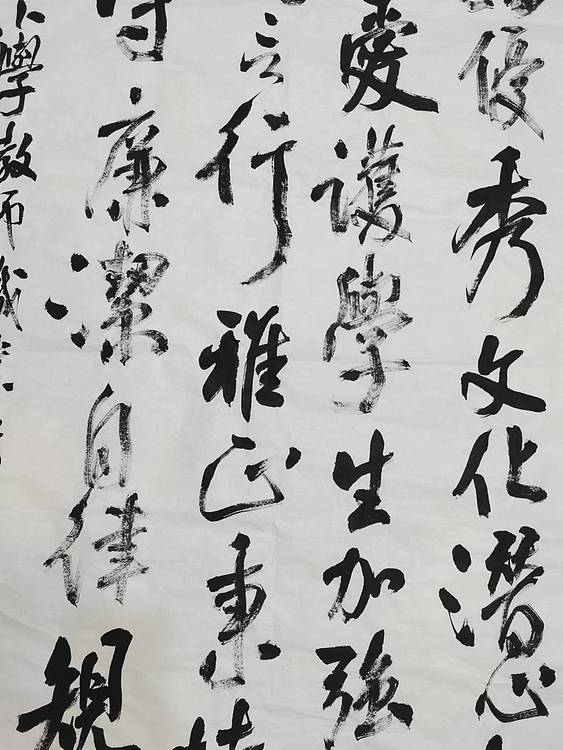 優秀文化潛心
愛護學生加強
言行雅正秉
守廉潔自律規
學教師